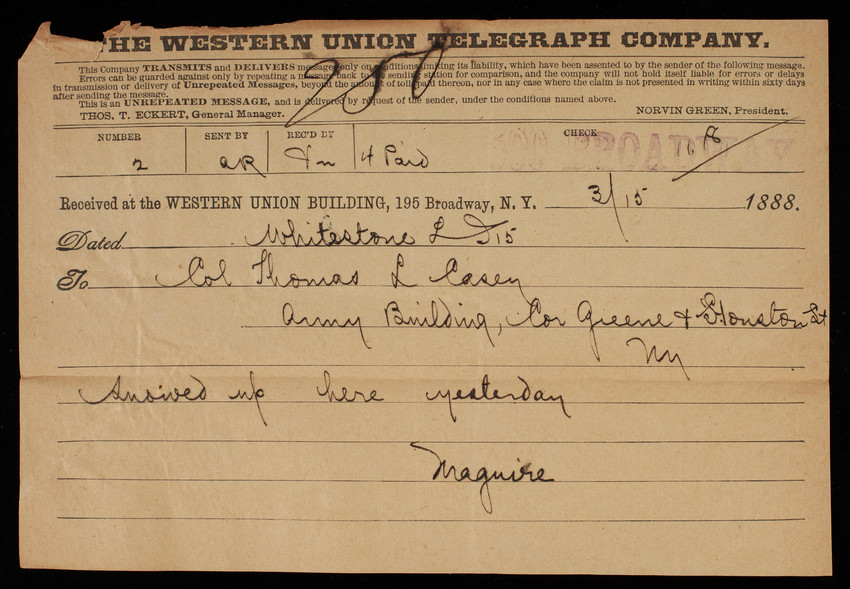 THE WESTERN UNION TELEGRAPH COMPANY.
This Company TRANSMITS and DELIVERS messages only on conditions limiting its liability, which have been assented to by the sender of the following message.
Errors can be guarded against only by repeating a message back to the sending station for comparison, and the company will not hold itself liable for errors or delays
in transmission or delivery of Unrepeated Messages, beyond the amount of tolls paid thereon, nor in any case where the claim is not presented in writing within sixty days
after sending the message.
This is an UNREPEATED MESSAGE, and is delivered by request of the sender, under the conditions named above.
THOS. T. ECKERT, General Manager. NORVIN GREEN, President.
NUMBER SENT BY REC'D BY CHECK
2 4 Paid 8
Received at the WESTERN UNION BUILDING, 195 Broadway, N. Y. 3/15 1888.
Dated Whitestone L I 15
To Col Thomas L Casey
Army Building, Cor Greene & Houston St
Ny
Arrived up here yesterday
Maguire